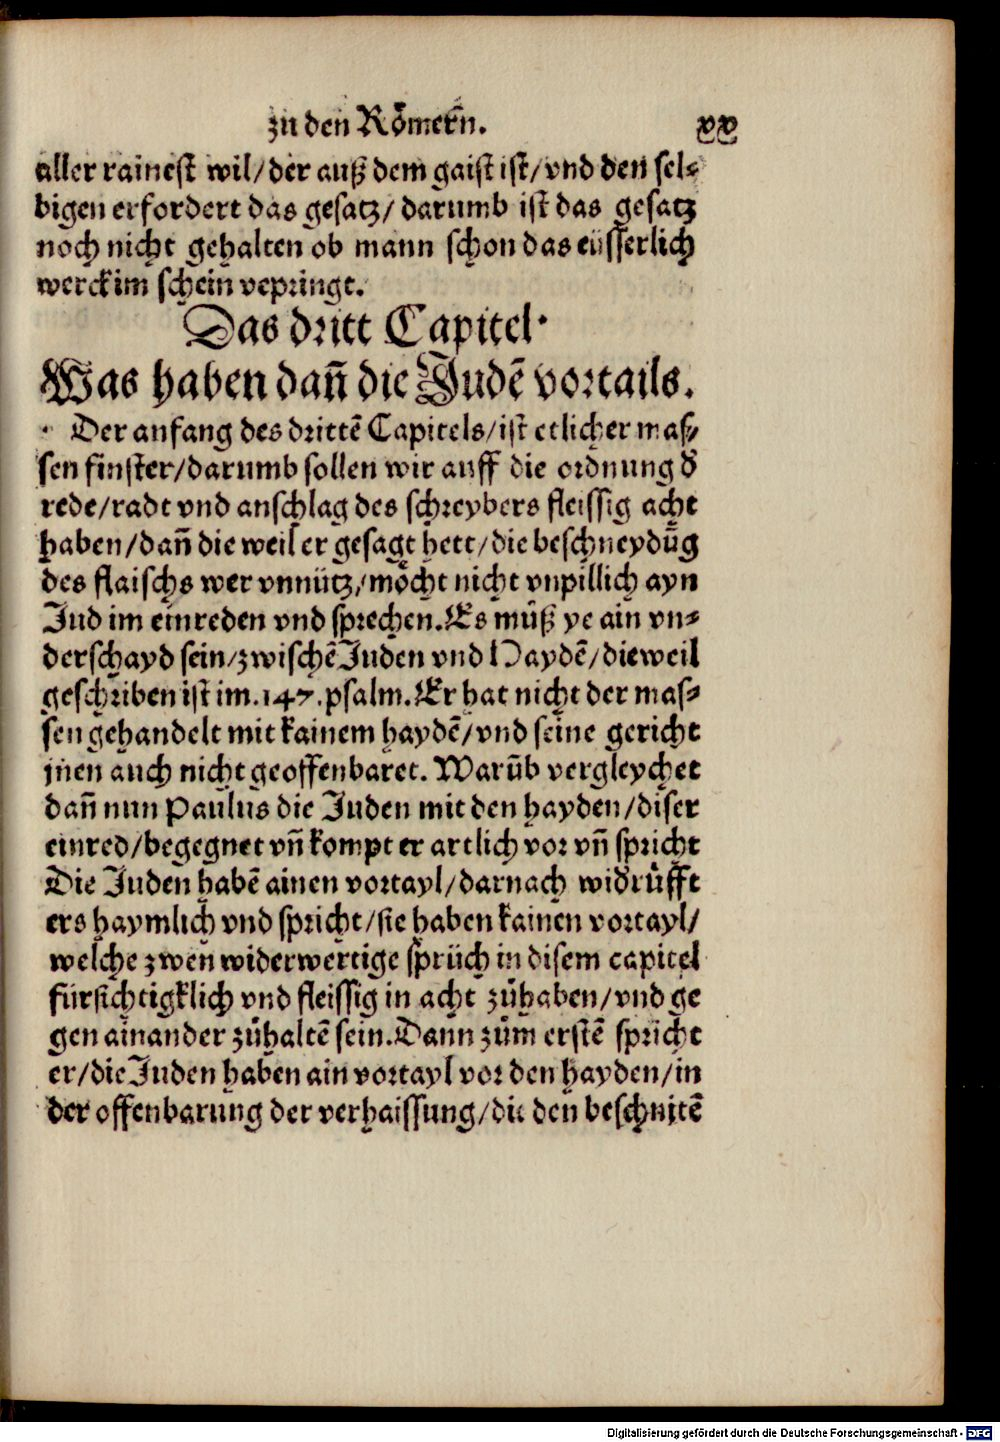 zu den Rőmern̄. xx
aller rainest wil/der auß dem gaist ist/vnd den sel⸗
bigen erfordert das gesatz/ darumb ist das gesatz
noch nicht gehalten ob mann schon das eüsserlich
werck im schein vepringt.
Das dritt Capitel.
Was haben dañ die Judẽ vortails.
Der anfang des drittẽ Capitels/ist etlicher mas⸗
sen finster/darumb sollen wir auff die ordnung d
rede/radt vnd anschlag des schreybers fleissig acht
haben/dañ die weil er gesagt hett/die beschneydũg
des flaischs wer vnnütz/moͤcht nicht vnpillich ayn
Jud im einreden vnd sprechen. Es muͤß ye ain vn⸗
derschayd sein/zwischẽ Juden vnd Haydẽ/dieweil
geschriben ist im .147. psalm. Er hat nicht der mas⸗
sen gehandelt mit kainem haydẽ/vnd seine gericht
jnen auch nicht geoffenbaret. Warũb vergleychet
dañ nun Paulus die Juden mit den hayden/diser
einred/begegnet vñ kompt er artlich vor vñ spricht
Die Juden habẽ ainen vortayl/darnach widruͤfft
ers haymlich vnd spricht/sie haben kainen vortayl/
welche zwen widerwertige sprüch in disem capitel
fürsichtigklich vnd fleissig in acht zuͤhaben/vnd ge
gen ainander zuͤhaltẽ sein. Dann zuͤm erstẽ spricht
er/die Juden haben ain vortayl vor den hayden/in
der offenbarung der verhaissung/die den beschnitẽ
Digitalisierung gefördert durch die Deutsche Forschungsgemeinschaft - DFG